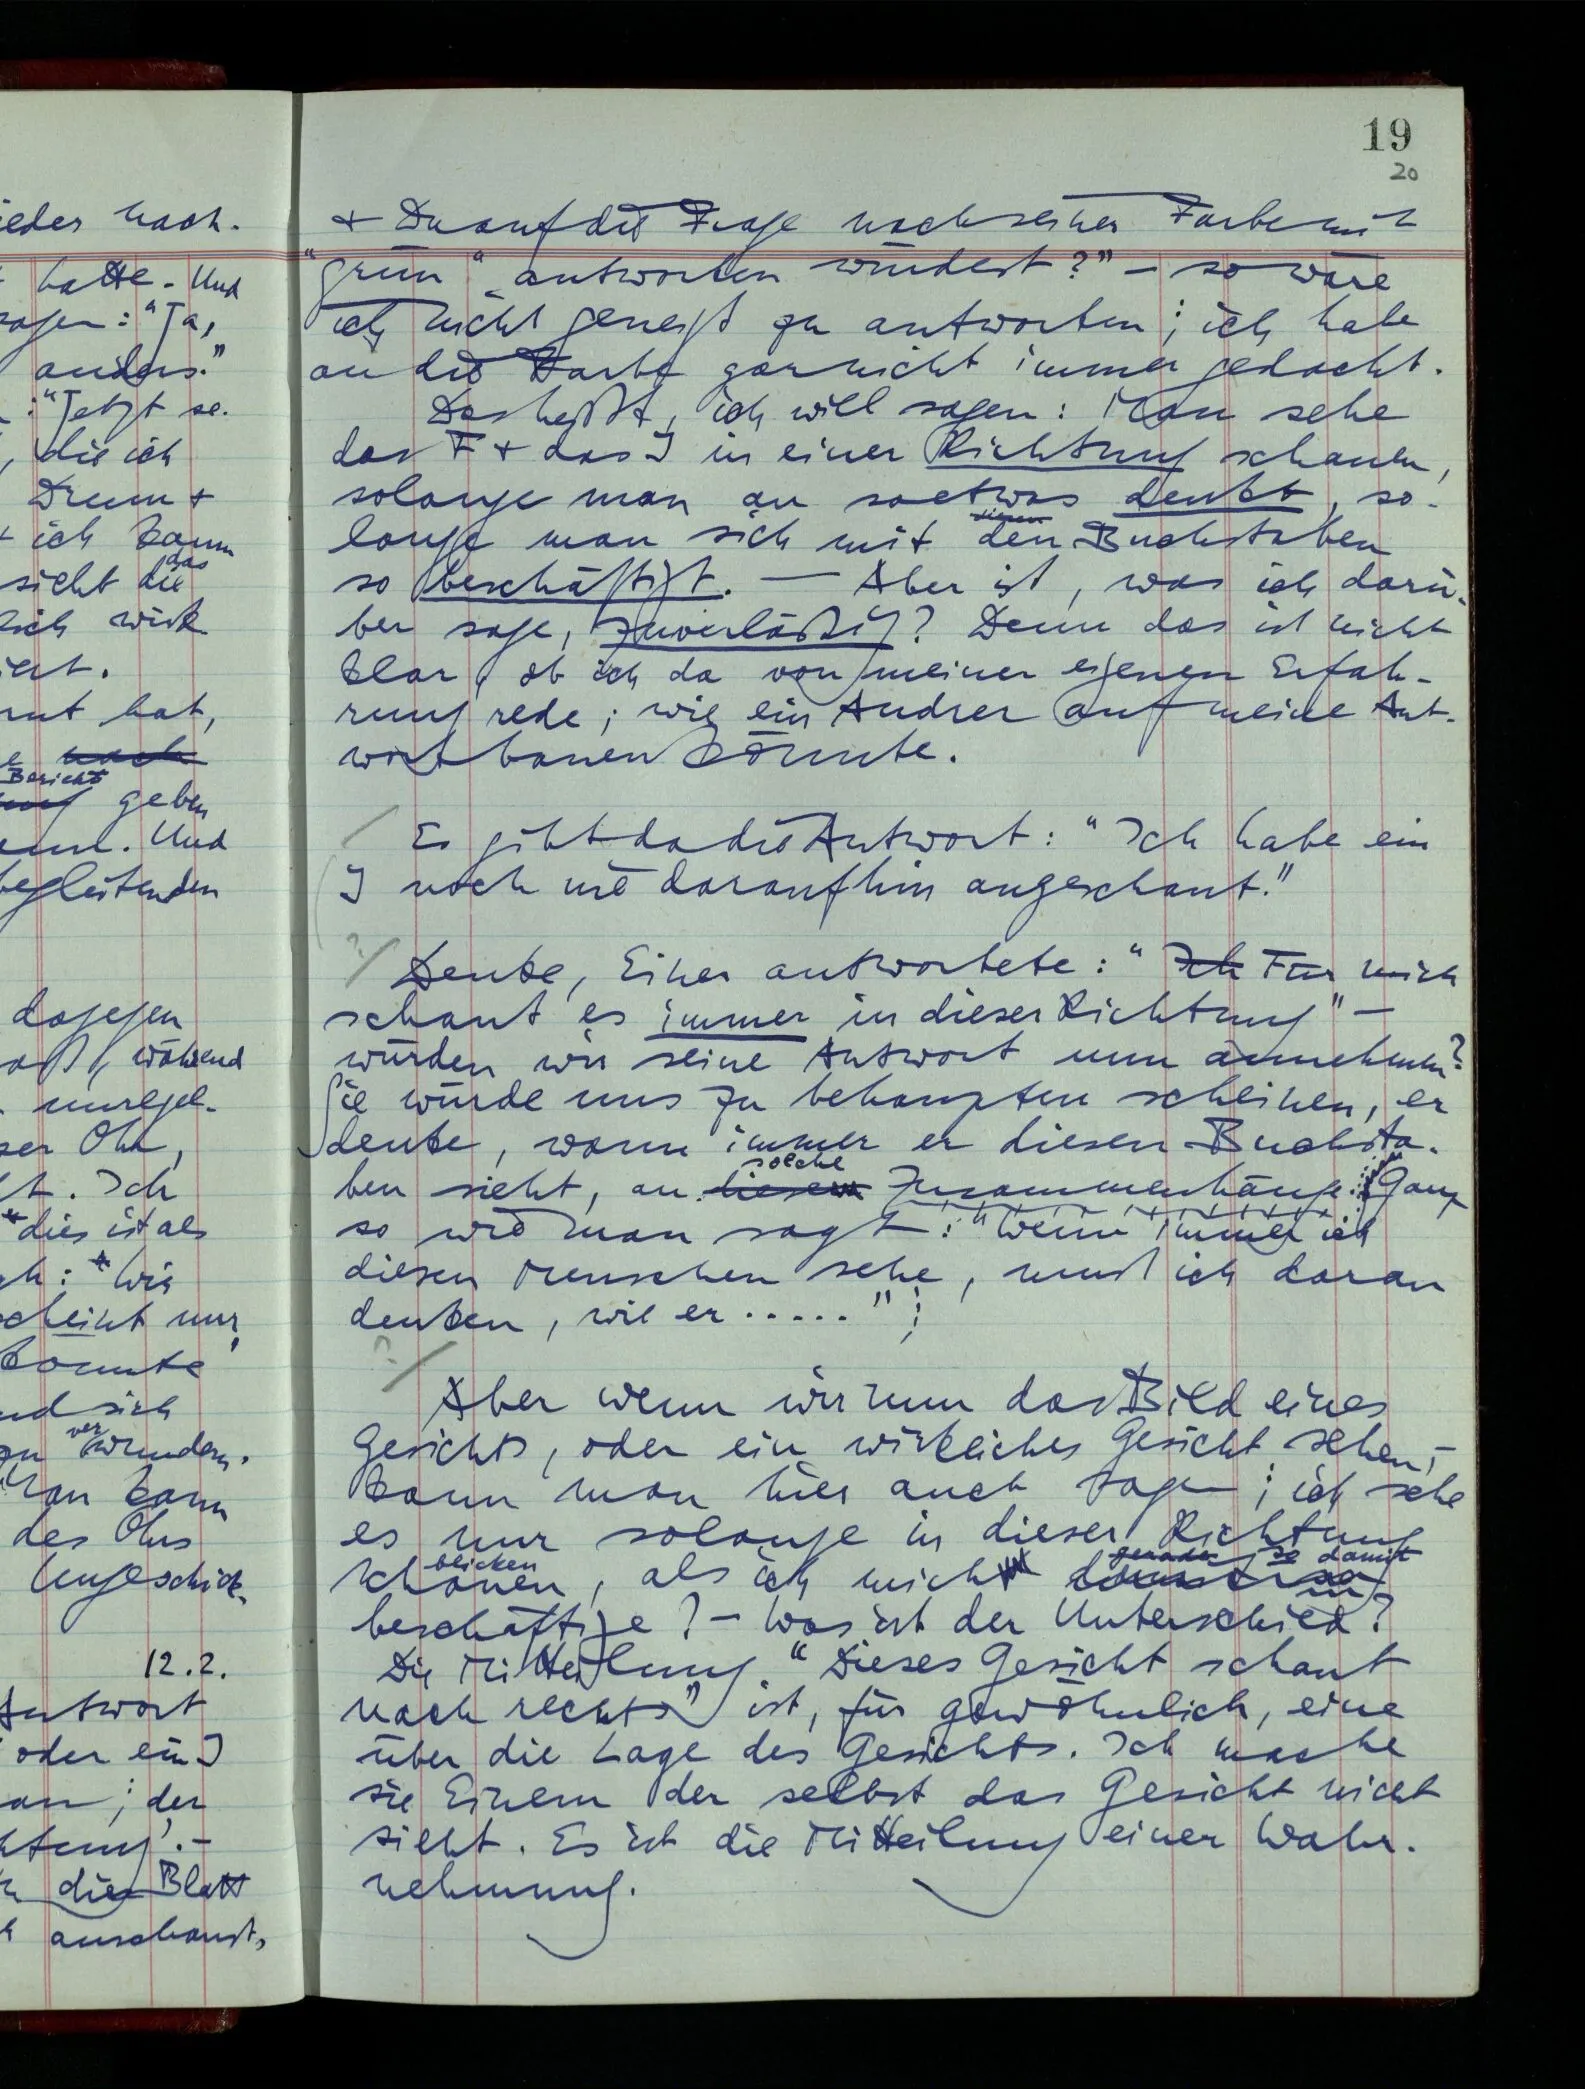 ieder nach.
hatte. Und
sagen: "Ja,
anders."
: "Jetzt se-
, die ich
Drum +
+ ich kann
das
sieht die
sich wirk
iert.
nnt hat,
nach
Bericht
geben
Und
begleitenden
dagegen
während
unregel-
ser Ohr,
Ich
dies ist als
: "Wir
scheint nur
könnte
nd sich
zu verwundern.
Man kann
des Ohrs
Ungeschick-
12.2.
Antwort
oder ein J
an; der
htung'. –
die Blatt
anschaust,
19
20
+ Du auf die Frage nach seiner Farbe mit
"grün" antworten würdest?" – so wäre
ich nicht geneigt zu antworten; ich habe
an die Farbe garnicht immer gedacht.
Das heißt, ich will sagen: Man sehe
das F + das J in einer Richtung schauen,
solange man an soetwas denkt, so-
diesen
lange man sich mit den Buchstaben
so beschäftigt. — Aber ist, was ich darü-
ber sage, zuverläßig? Denn das ist nicht
klar, ob ich da von meiner eigenen Erfah-
rung rede; wie ein Andrer auf meine Ant-
wort bauen könnte.
Es gibt da die Antwort: "Ich habe ein
J noch nie daraufhin angeschaut."
Denke, Einer antwortete: "Ich Für mich
schaut es immer in dieser Richtung" –
würden wir seine Antwort nun annehmen?
Sie würde uns zu behaupten scheinen, er
denke, wann immer er diesen Buchsta-
solche
ben sieht, an diesen Zusammenhänge. Ganz
so wie man sagt: "Wenn immer ich
diesen Menschen sehe, muß ich daran
denken, wie er ....." ;
Aber wenn wir nun das Bild eines
Gesichts, oder ein wirkliches Gesicht sehen, –
kann man hier auch sagen: ich sehe
es nur solange in dieser Richtung
blicken gerade so damit
schauen, als ich mich
beschäftige? – Was ist der Unterschied?
Die Mitteilung "Dieses Gesicht schaut
nach rechts" ist, für gewöhnlich, eine
über die Lage des Gesichts. Ich mache
sie Einem der selbst das Gesicht nicht
sieht. Es ist die Mitteilung einer Wahr-
nehmung.